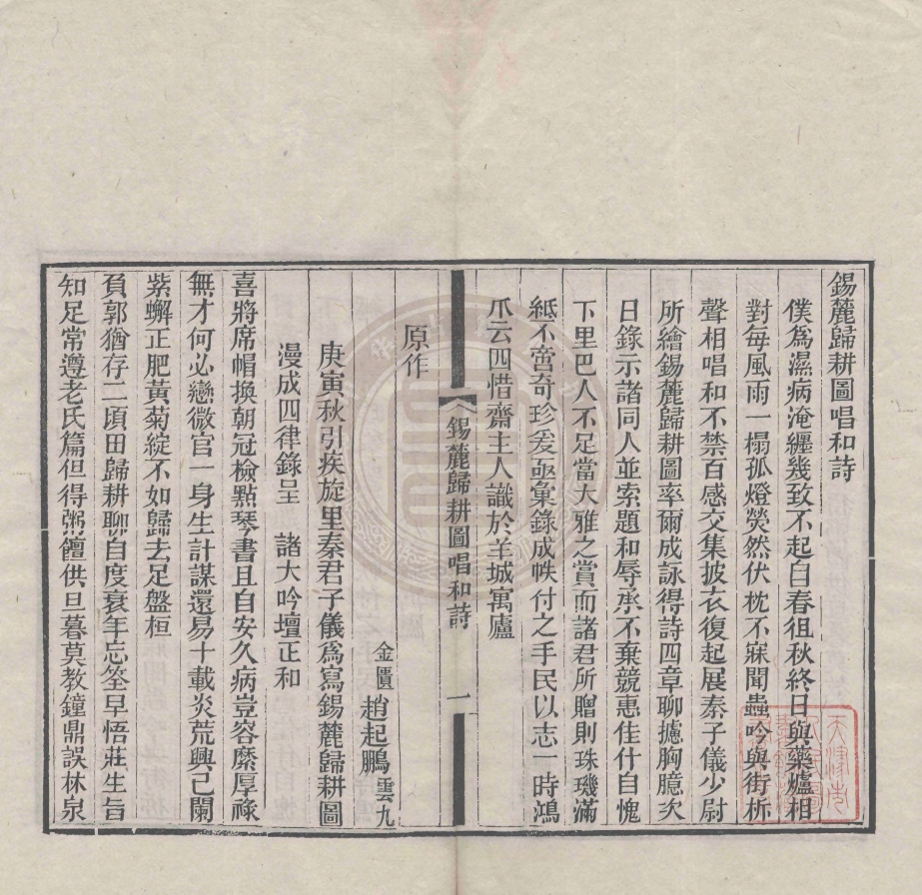 錫麓歸耕圖唱和詩
僕爲濕病淹纏幾致不起自春徂秋終日與藥爐相
對每風雨一榻孤燈熒然伏枕不寐聞蟲吟與街柝
聲相唱和不禁百感交集披衣復起展秦子儀少尉
所繪錫麓歸耕圖率爾成詠得詩四章聊攄胸臆次
日錄示諸同人並索題和辱承不棄競惠佳什自愧
下里巴人不足當大雅之賞而諸君所贈則珠璣滿
紙不啻奇珍爰亟彙錄成帙付之手民以志一時鴻
爪云四惜齋主人識於羊城寓廬
錫麓歸耕圖唱和詩 一
原作
金匱 趙起鵬 雲九
庚寅秋引疾旋里秦君子儀爲寫錫麓歸耕圖
漫成四律錄呈 諸大吟壇正和
喜將席帽換朝冠檢點琴書且自安久病豈容縻厚祿
無才何必戀微官一身生計謀還易十載炎荒興已闌
紫蠏正肥黃菊綻不如歸去足盤桓
負郭猶存二頃田歸耕聊自度衰年忘筌早悟莊生旨
知足常遵老氏篇但得粥饘供旦暮莫教鐘鼎誤林泉